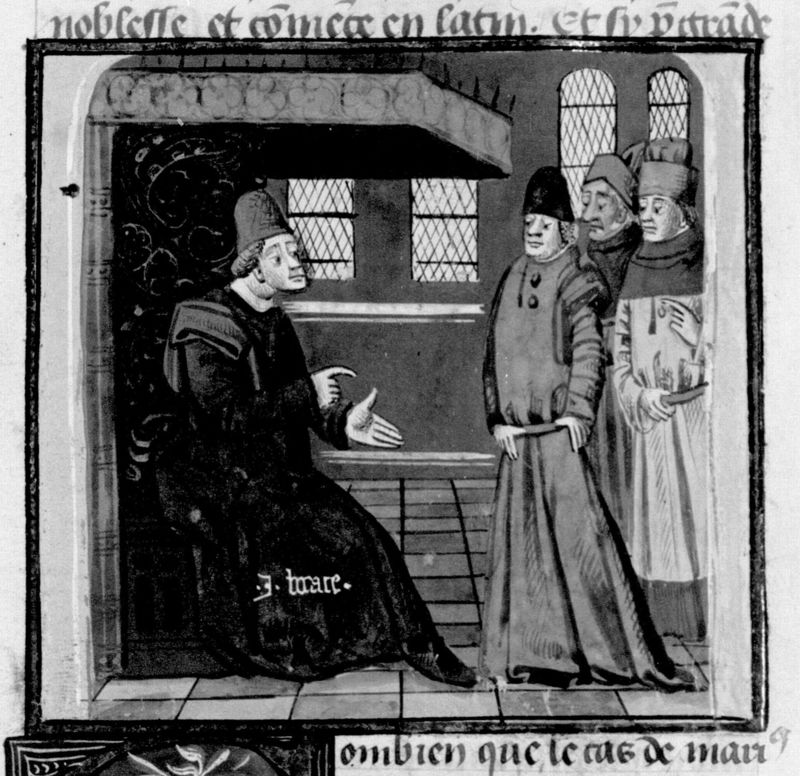 noblesse et cōmēce en latin. Et sy p̄ttrāde
.J. bocace.
ombien que le cas de mari